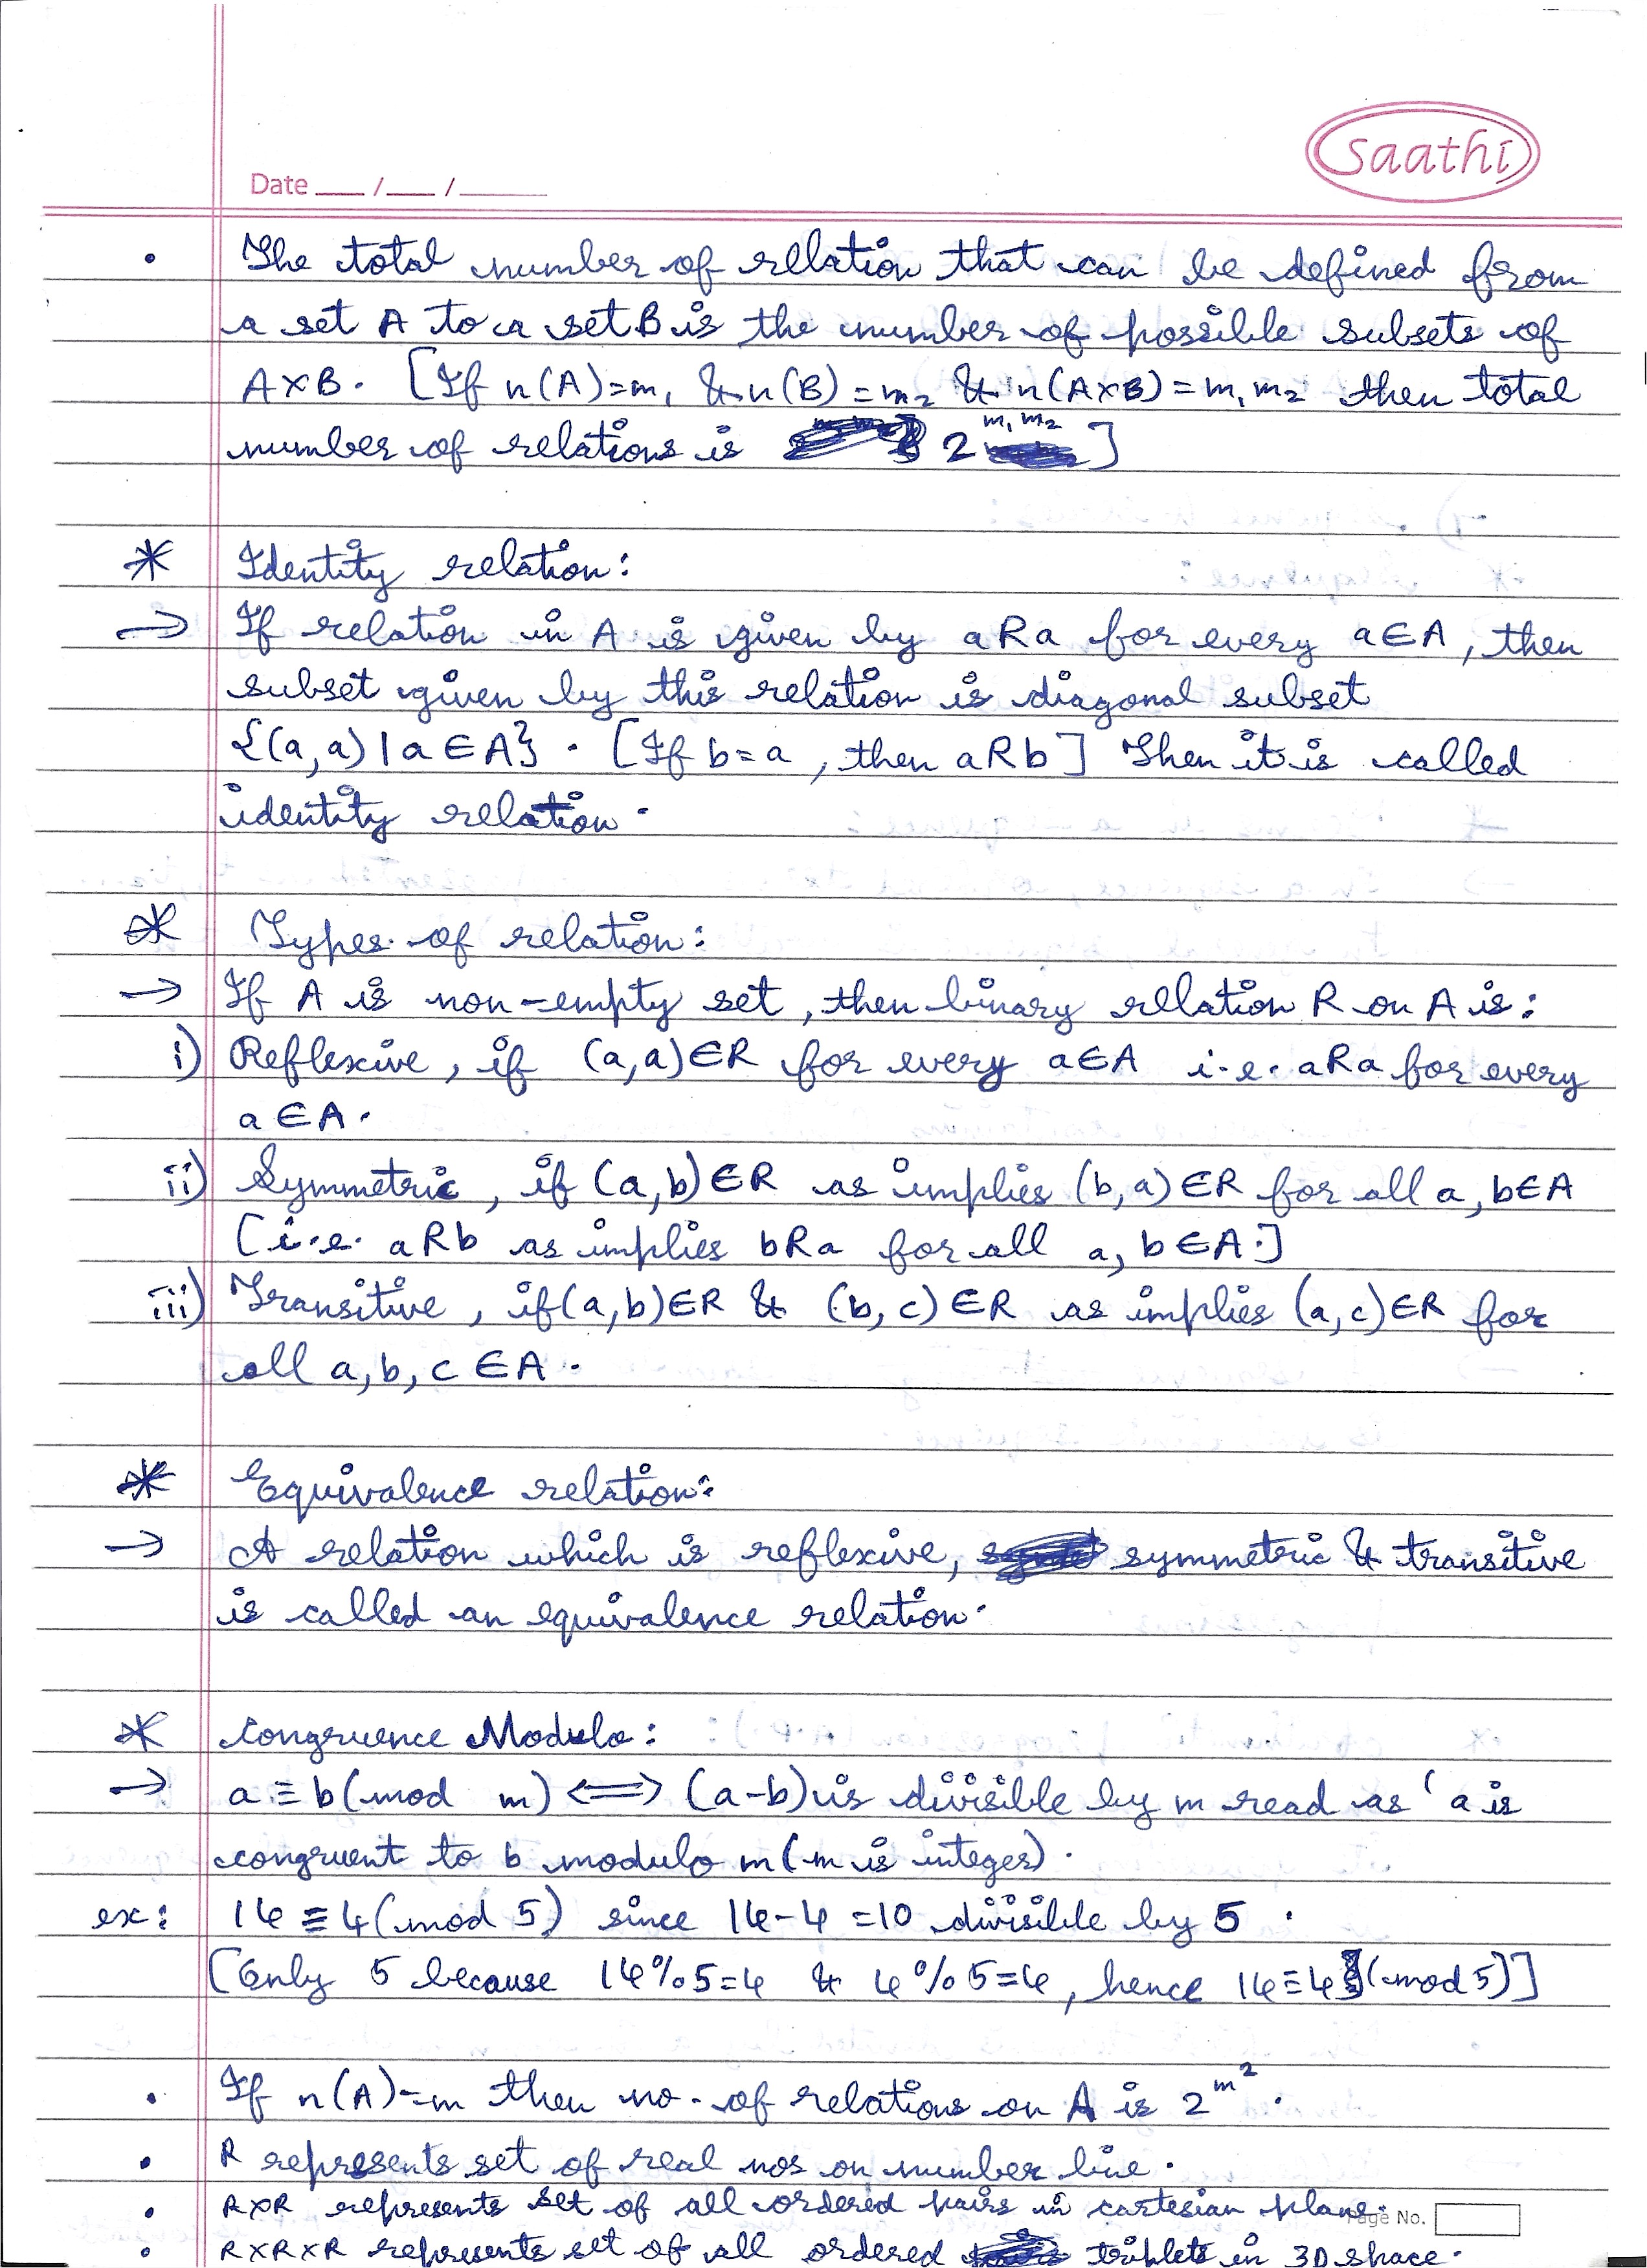 Saathi
Date ___/___/______
• The total number of relation that can be defined from
a set A to a set B is the number of possible subsets of
A×B. [If n(A)=m₁ & n(B)=m₂ & n(A×B)=m₁m₂ then total
number of relations is 2^m₁m₂]
* Identity relation:
→ If relation in A is given by aRa for every a∈A, then
subset given by this relation is diagonal subset
{(a,a)|a∈A}. [If b=a, then aRb] Then it is called
identity relation.
* Types of relation:
→ If A is non-empty set, then binary relation R on A is:
i) Reflexive, if (a,a)∈R for every a∈A i.e. aRa for every
a∈A.
ii) Symmetric, if (a,b)∈R as implies (b,a)∈R for all a,b∈A
[i.e. aRb as implies bRa for all a,b∈A.]
iii) Transitive, if (a,b)∈R & (b,c)∈R as implies (a,c)∈R for
all a,b,c∈A.
* Equivalence relation:
→ A relation which is reflexive, symmetric & transitive
is called an equivalence relation.
* Congruence Modulo:
→ a≡b(mod m)⟺(a-b) is divisible by m read as ‘a is
congruent to b modulo m(m is integer).
ex: 14≡4(mod 5) since 14-4=10 divisible by 5.
[Only 5 because 14%5=4 & 4%5=4, hence 14≡4(mod 5)]
• If n(A)=m then no. of relations on A is 2^m².
• R represents set of real nos on number line.
• R×R represents set of all ordered pairs in cartesian plane.
Page No.
• R×R×R represents set of all ordered triplets in 3D space.